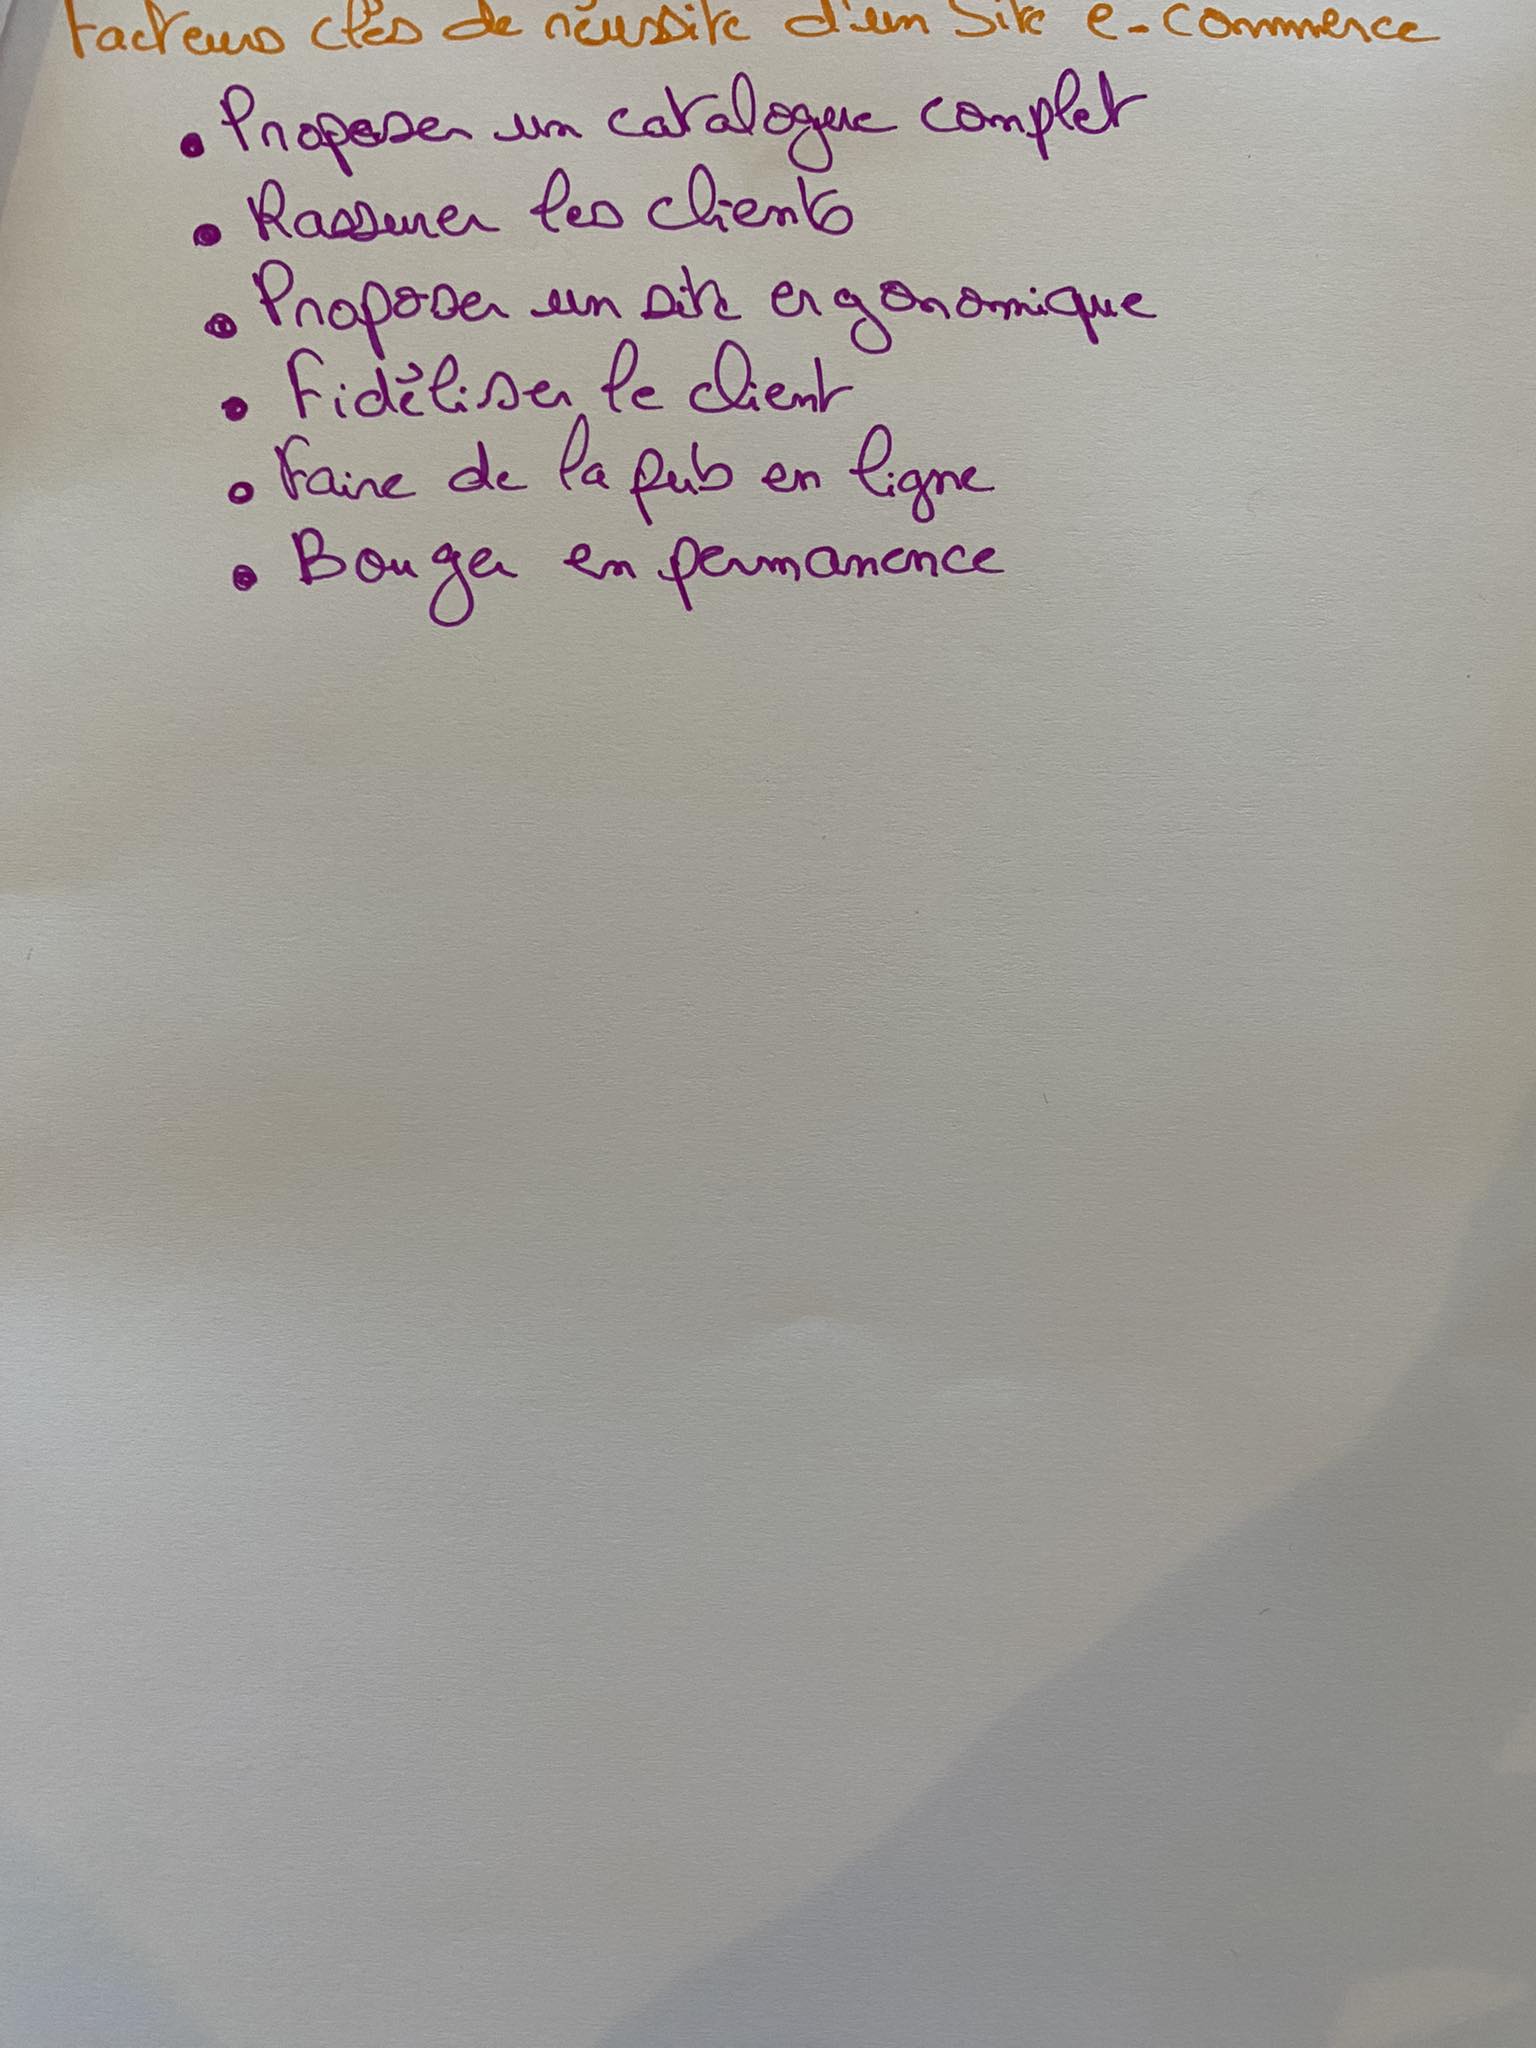 Facteurs clés de réussite d'un Site e-commerce
• Proposer un catalogue complet
• Rassurer les clients
• Proposer un site ergonomique
• Fidéliser le client
• Faire de la pub en ligne
• Bouger en permanence